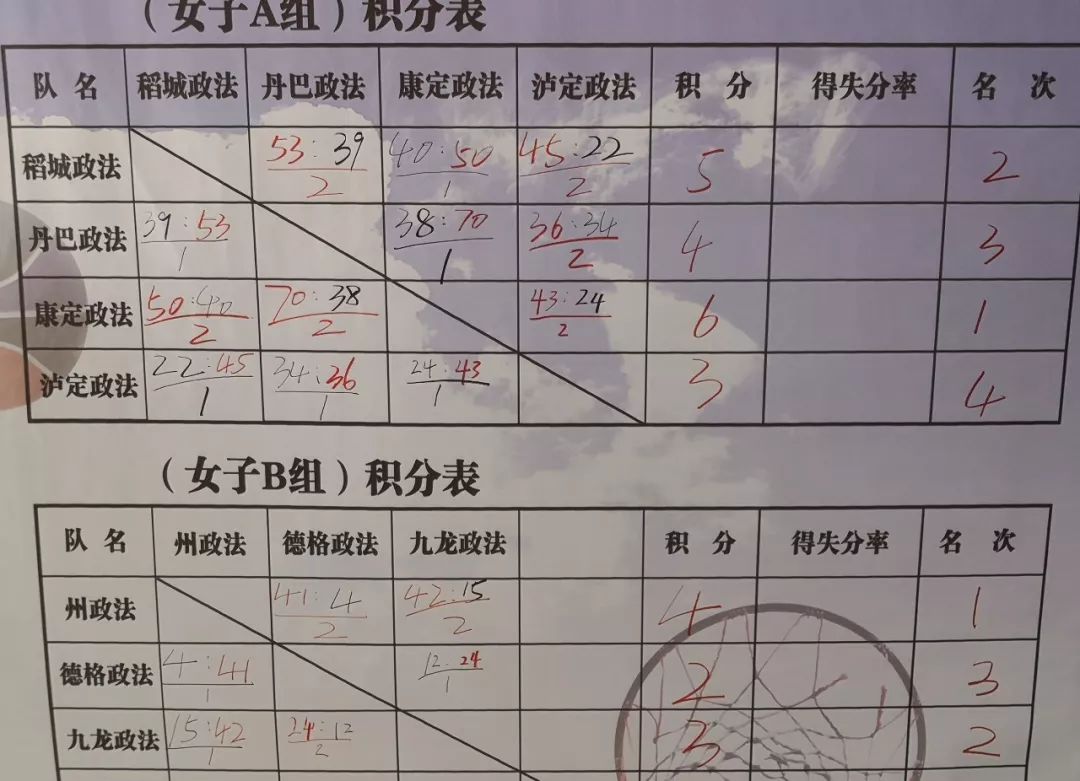 （女子A组）积分表
队 名 稻城政法 丹巴政法 康定政法 泸定政法 积 分 得失分率 名 次
稻城政法 53:39 40:50 45:22 5 2
2 1 2
丹巴政法 39:53 38:70 36:34 4 3
1 1 2
康定政法 50:40 70:38 43:24 6 1
2 2 2
泸定政法 22:45 34:36 24:43 3 4
1 1 1
（女子B组）积分表
队 名 州政法 德格政法 九龙政法 积 分 得失分率 名 次
州政法 41:4 42:15 4 1
2 2
德格政法 4:41 12:24 2 3
1 1
九龙政法 15:42 24:12 3 2
1 2